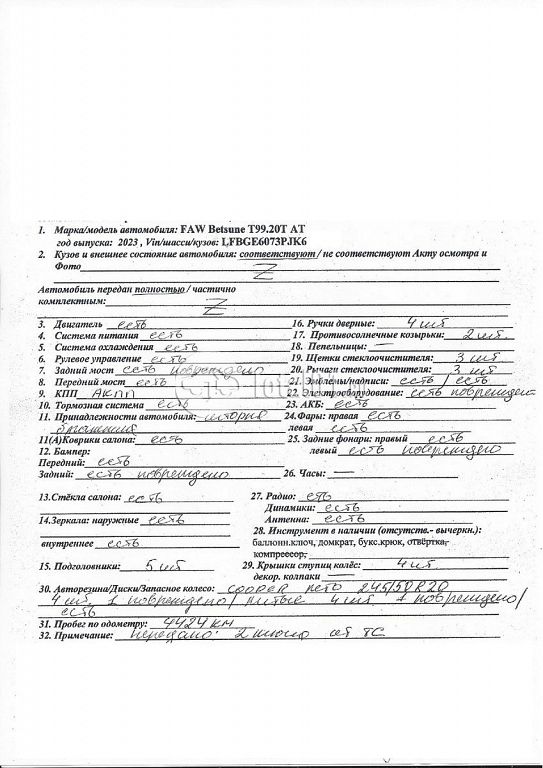 1. Марка/модель автомобиля: FAW Betsune T99.20T AT
год выпуска: 2023 , Vin/шасси/кузов: LFBGE6073PJK6
2. Кузов и внешнее состояние автомобиля: соответствуют / не соответствуют Акту осмотра и
Фото Z
Автомобиль передан полностью / частично
комплектным: Z
3. Двигатель есть 16. Ручки дверные: 4 шт
4. Система питания есть 17. Противосолнечные козырьки: 2 шт.
5. Система охлаждения есть 18. Пепельницы: —
6. Рулевое управление есть 19. Щетки стеклоочистителя: 3 шт
7. Задний мост есть повреждено 20. Рычаги стеклоочистителя: 3 шт
8. Передний мост есть 21. Эмблемы/надписи: есть / есть
9. КПП АКПП 22. Электрооборудование: есть поврежден
10. Тормозная система есть 23. АКБ: есть
11. Принадлежности автомобиля: 24.Фары: правая есть
левая есть
11(А)Коврики салона: есть 25. Задние фонари: правый есть
12. Бампер: левый есть повреждено
Передний: есть
Задний: есть повреждено 26. Часы: —
13.Стёкла салона: есть 27. Радио: есть
Динамики: есть
14.Зеркала: наружные есть Антенна: есть
28. Инструмент в наличии (отсутств.- вычеркн.):
внутреннее есть баллонн.ключ, домкрат, букс.крюк, отвёртка,
компрессор,
15. Подголовники: 5 шт 29. Крышки ступиц колёс: 4 шт.
декор. колпаки —
30. Авторезина/Диски/Запасное колесо: cooper лето 245/50 R20
4 шт. 1 повреждено/ литые 4 шт. 1 повреждено/
есть
31. Пробег по одометру: 4424 км
32. Примечание: передано: 2 ключа от ТС